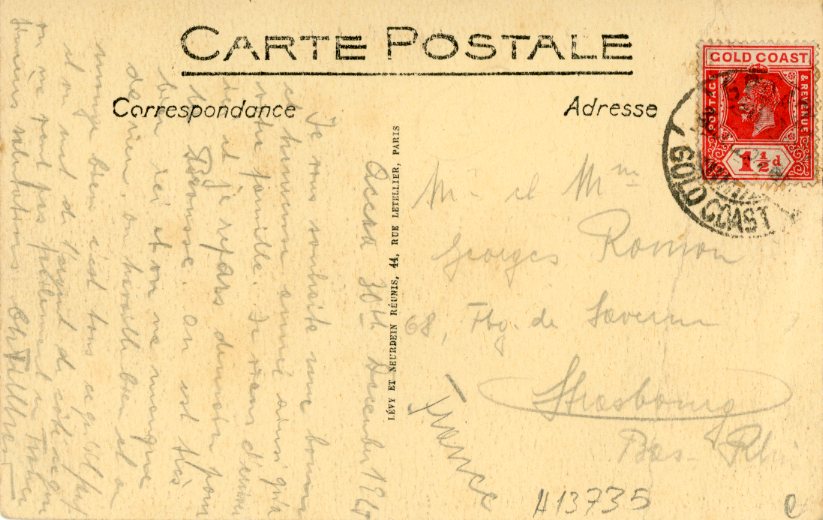 CARTE POSTALE
Correspondance
Adresse
GOLD COAST
POSTAGE
& REVENUE
1½d
GOLD COAST
LÉVY ET NEURDEIN RÉUNIS, 44, RUE LETELLIER, PARIS
Accra 30th December
Je vous souhaite une bonne
et heureuse année ainsi qu'à
votre famille. Je viens d'
et je repars demain pour
. on est très
bien ici et on ne manque
de rien on travaille bien et on
mange bien c'est tous
et on met de l'argent de côté
on ne peut pas
salutations
Mr et Mme
Georges
68, Fbg. de Saverne
Strasbourg
Bas-Rhin
France
A13735
e